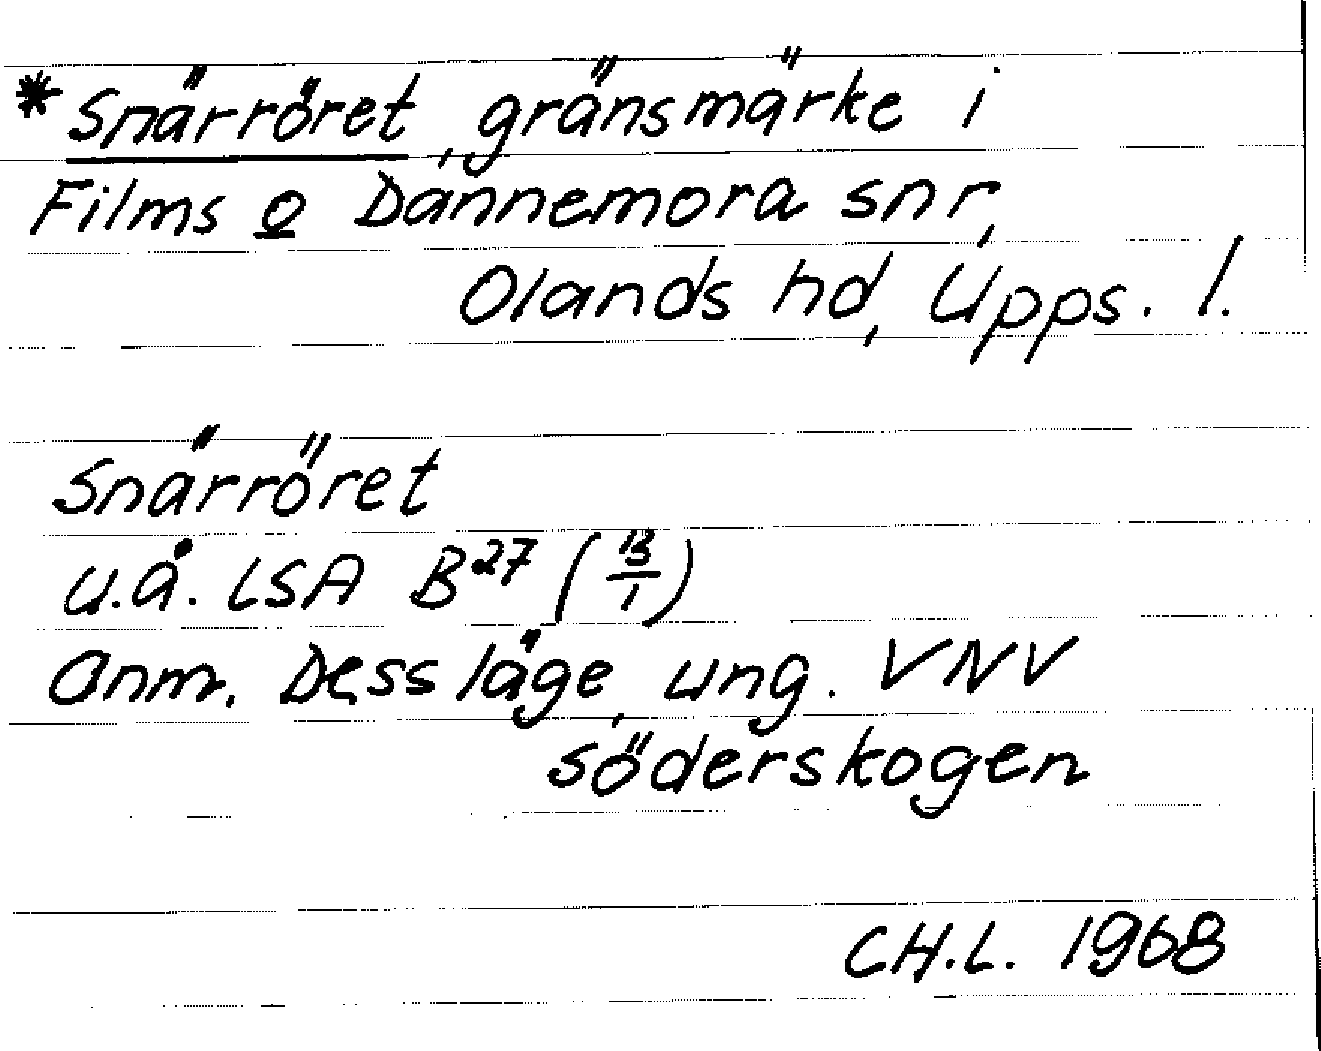 *Snärröret, gränsmärke i
Films o Dannemora snr,
Olands hd, Upps. l.
Snärröret
u.å. LSA B27 (13/1)
Anm. Dess läge, ung. VNV
Söderskogen
CH.L. 1968